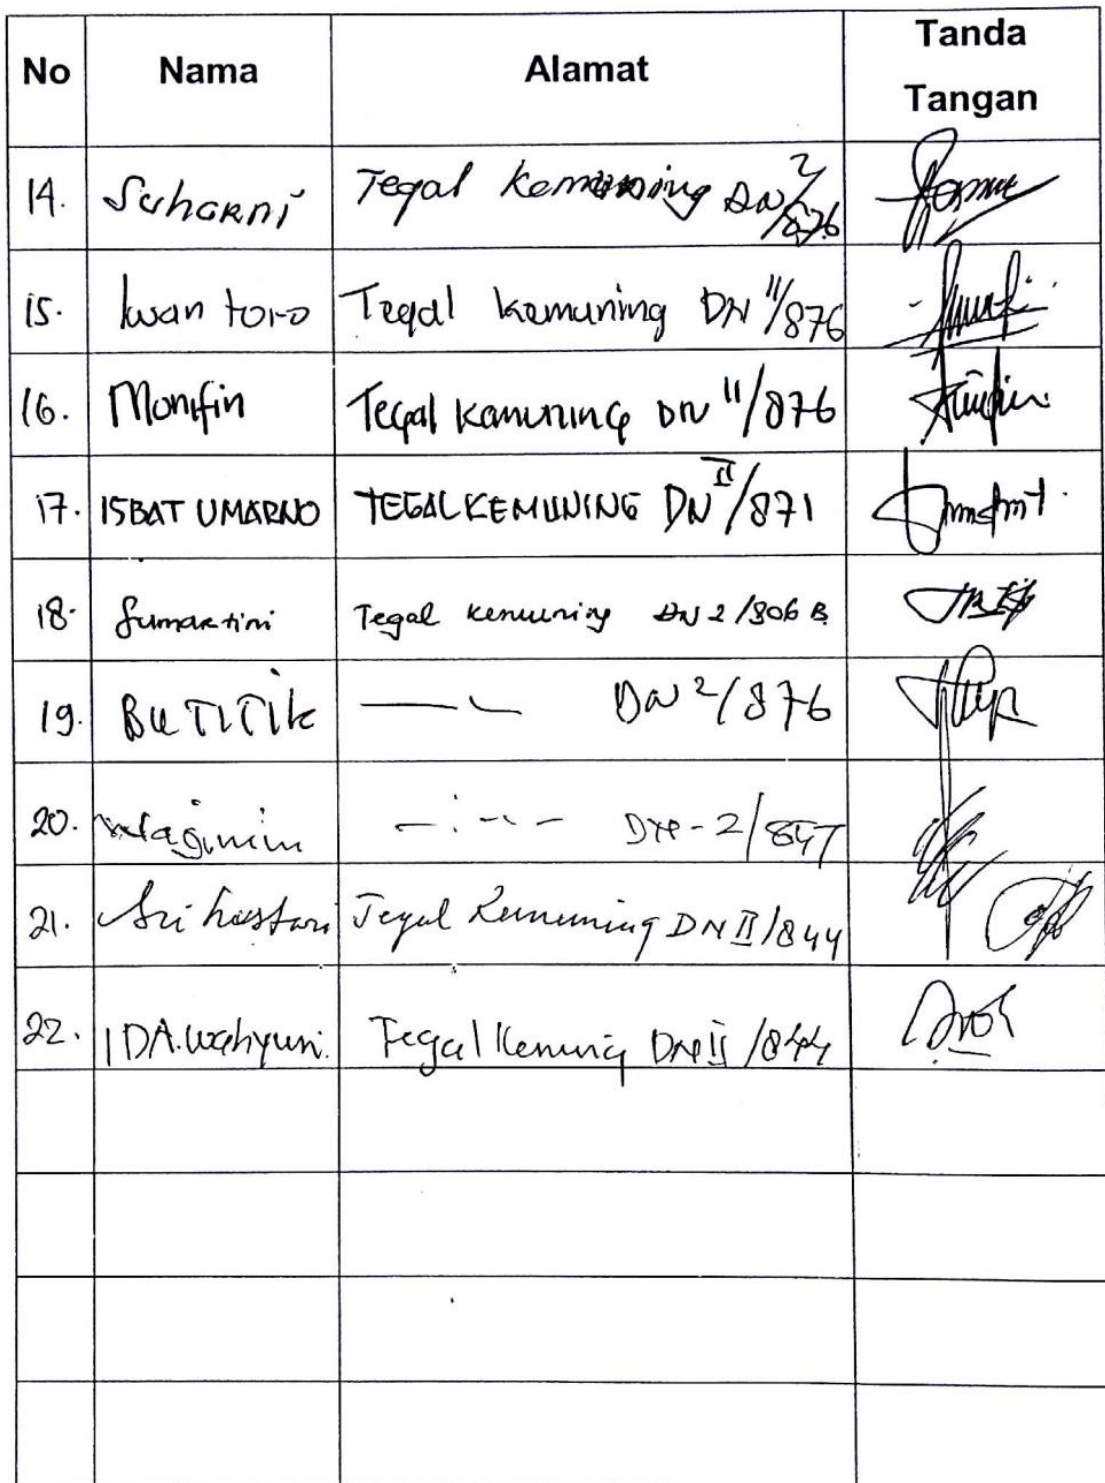 No Nama Alamat Tanda Tangan
14. Suharni Tegal Kemuning DN 2/876
15. Iwan toro Tegal kemuning DN II/876
16. Monifin Tegal kemuning DN II/876
17. ISBAT UMARNO TEGALKEMUNING DN II/871
18. Sumartini Tegal kemuning DN 2/806 B
19. BU TITIK DN 2/876
20. Waginim 2/847
21. Sri hastari Tegal Kemuning DN II/844
22. IDA.Wahyuni. Tegal Kemunig DN II/844